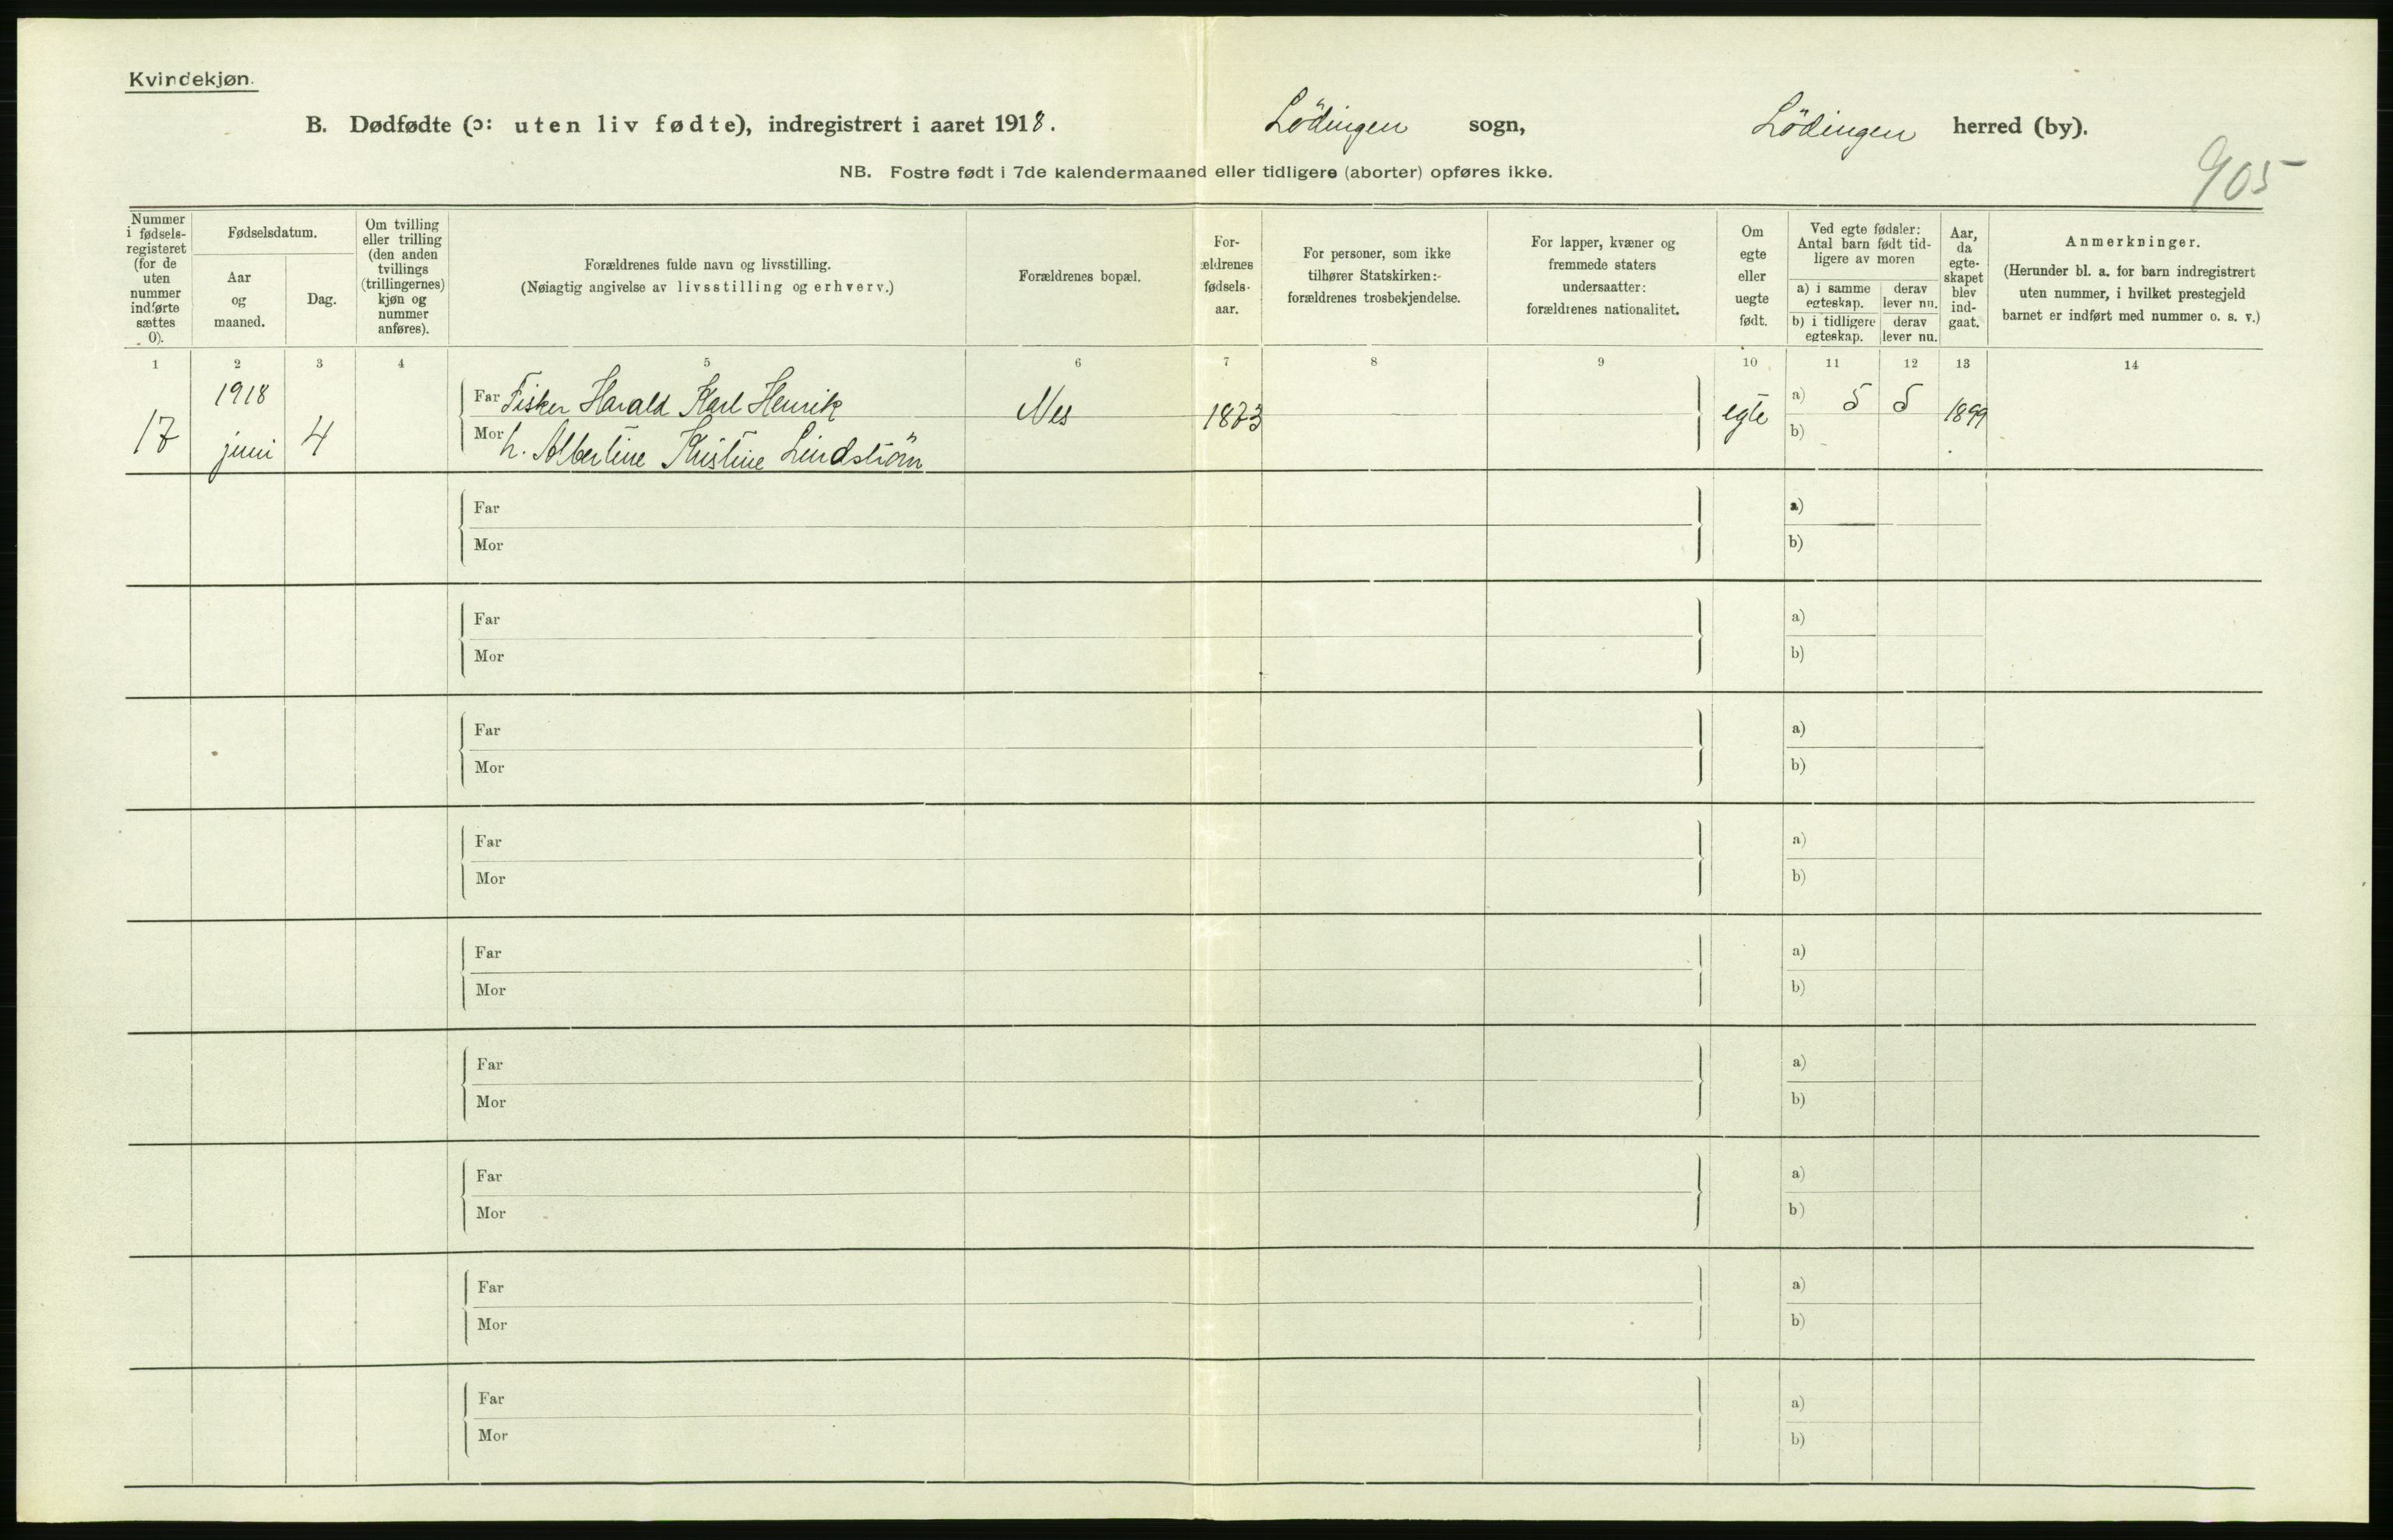 Kvindekjøn.
B. Dødfødte (ɔ: uten liv fødte), indregistrert i aaret 1918. Lödingen sogn, Lödingen herred (by).
NB. Fostre født i 7de kalendermaaned eller tidligere (aborter) opføres ikke.
905
Nummer
i fødsels-
registeret
(for de
uten
nummer
indførte
sættes
0).
Fødselsdatum.
Aar
og
maaned.
Dag.
Om tvilling
eller trilling
(den anden
tvillings
(trillingernes)
kjøn og
nummer
anføres).
Forældrenes fulde navn og livsstilling.
(Nøiagtig angivelse av livsstilling og erhverv.)
Forældrenes bopæl.
For-
ældrenes
fødsels-
aar.
For personer, som ikke
tilhører Statskirken:
forældrenes trosbekjendelse.
For lapper, kvæner og
fremmede staters
undersaatter:
forældrenes nationalitet.
Om
egte
eller
uegte
født.
Ved egte fødsler:
Antal barn født tid-
ligere av moren
a) i samme
egteskap.
derav
lever nu.
b) i tidligere
egteskap.
derav
lever nu.
Aar,
da
egte-
skapet
blev
ind-
gaat.
Anmerkninger.
(Herunder bl. a. for barn indregistrert
uten nummer, i hvilket prestegjeld
barnet er indført med nummer o. s. v.)
1 2 3 4 5 6 7 8 9 10 11 12 13 14
17
1918
juni
4
Far Fisker Harald Karl Henrik
Mor h. Albertine Kristine Lindström
Nes
1873
egte
a) 5 5
b)
1899
Far
Mor
a)
b)
Far
Mor
a)
b)
Far
Mor
a)
b)
Far
Mor
a)
b)
Far
Mor
a)
b)
Far
Mor
a)
b)
Far
Mor
a)
b)
Far
Mor
a)
b)
Far
Mor
a)
b)